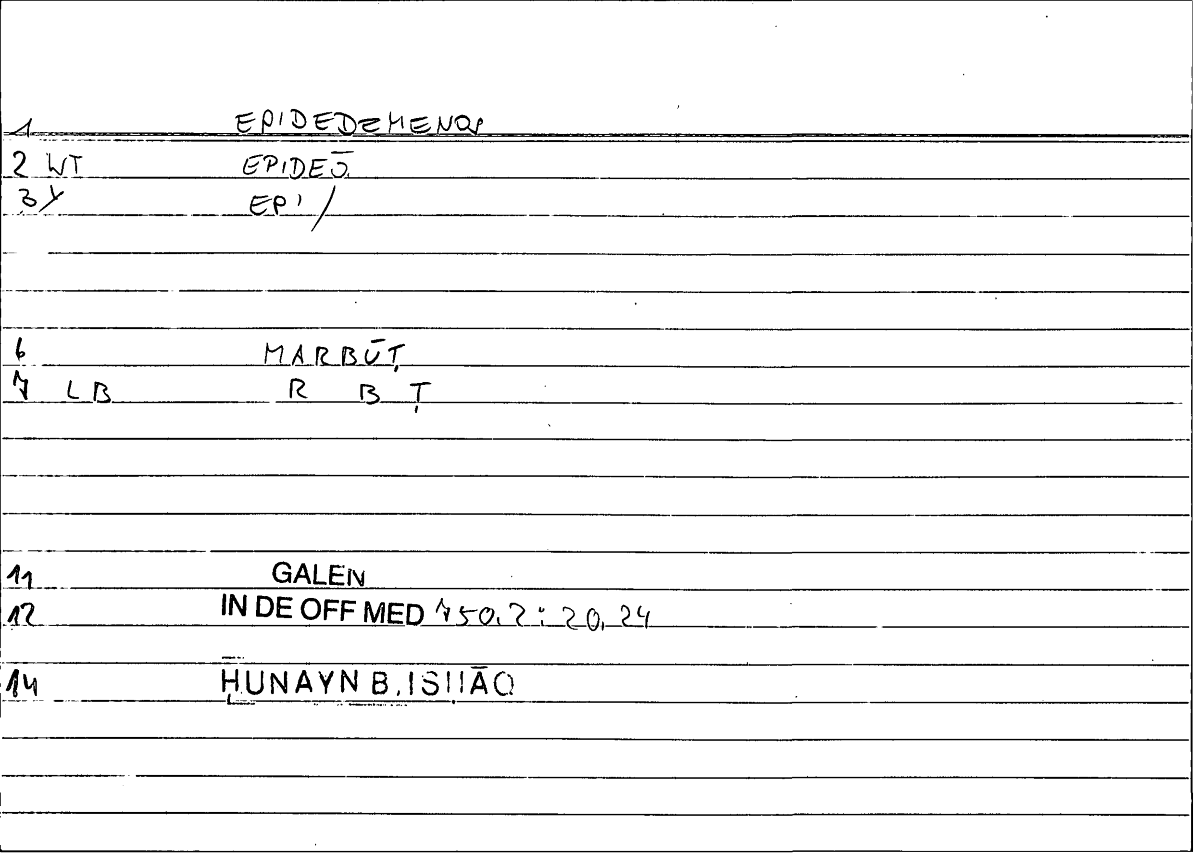 1 EPIDEDEMENOS
2 WT EPIDEŌ
3 Y EPI /
6 MARBŪṬ
7 LB R B Ṭ
11 GALEN
12 IN DE OFF MED 750,2 : 20,24
14 ḤUNAYN B. ISḤĀQ